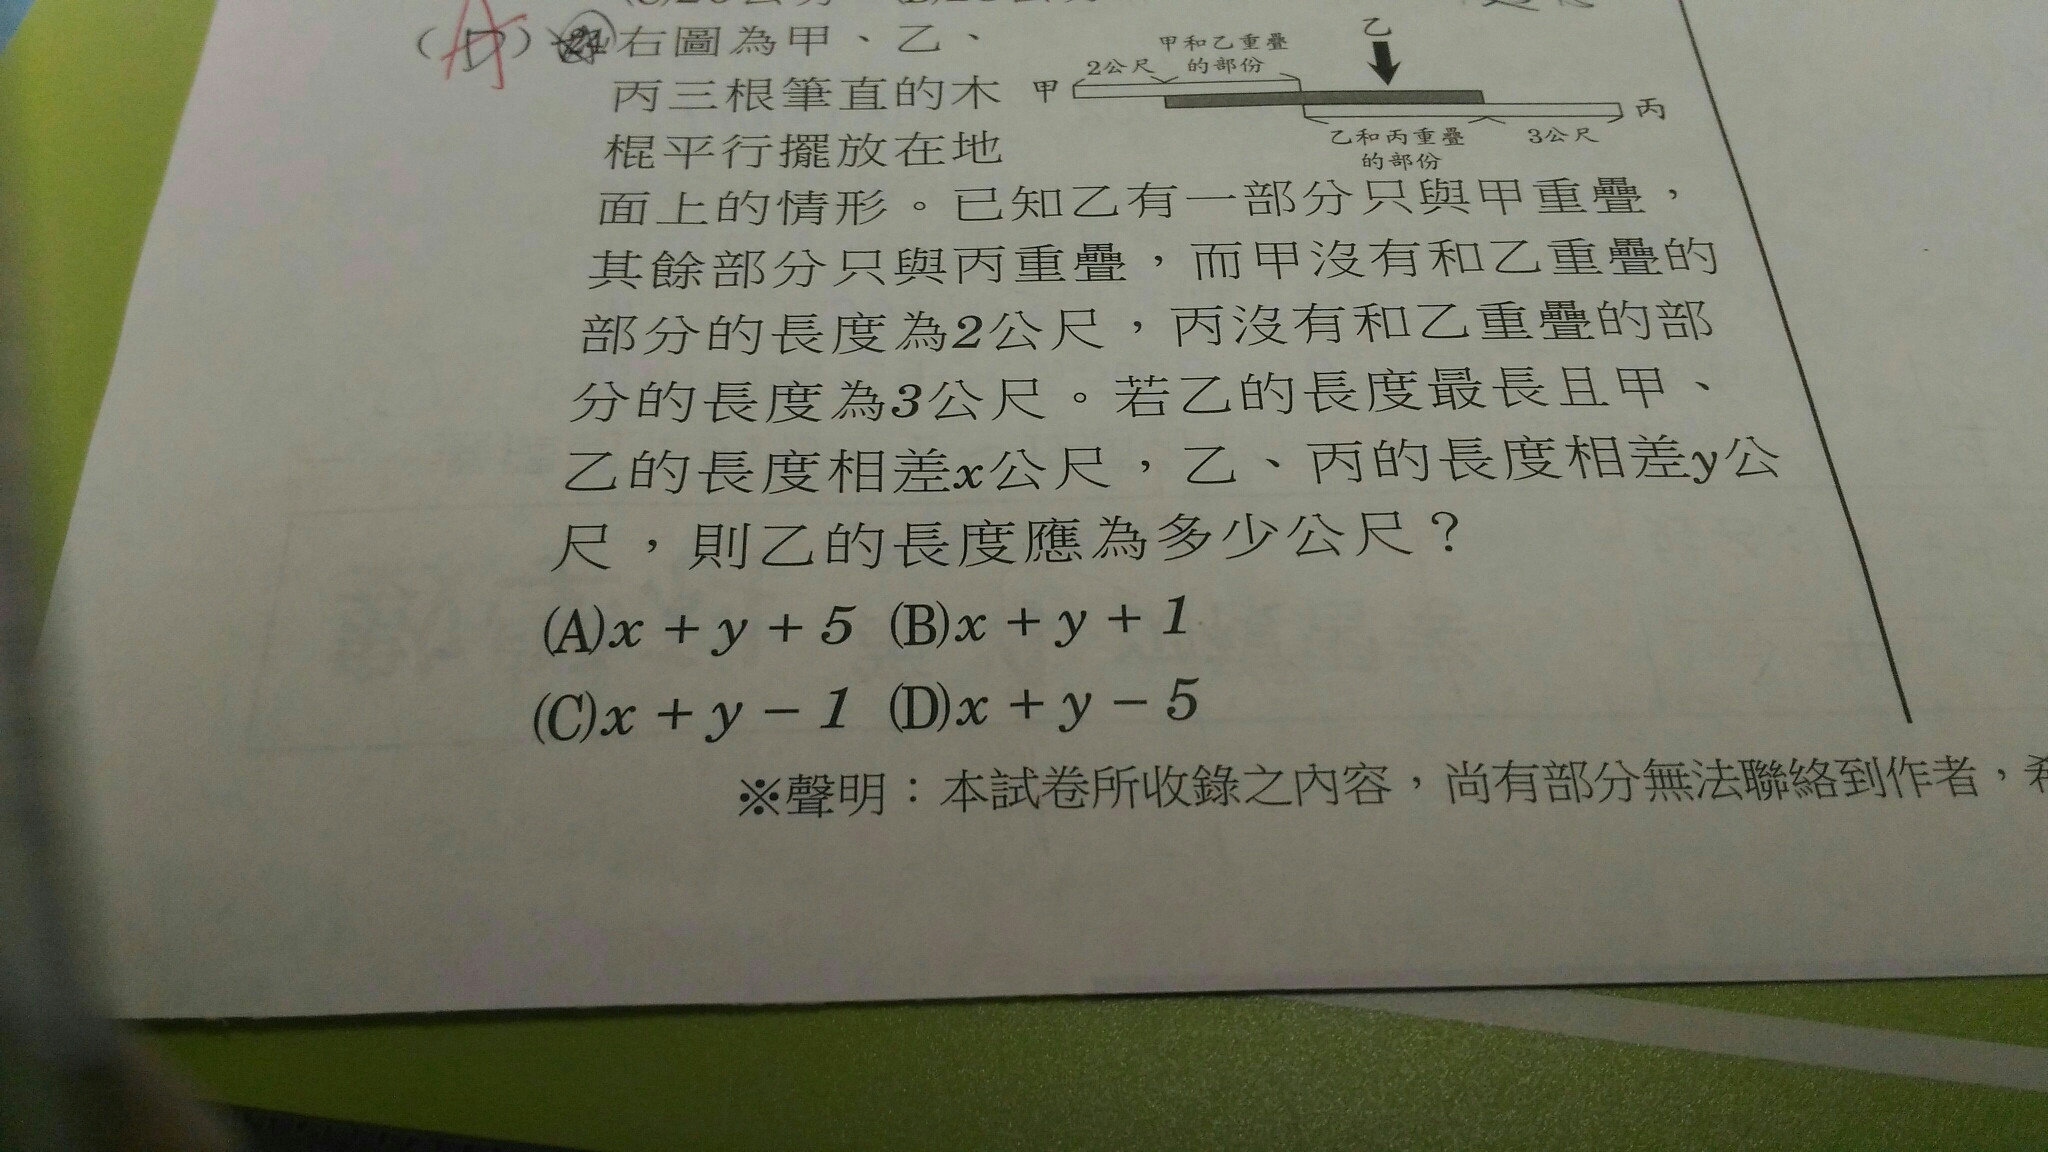 右圖為甲、乙、
丙三根筆直的木
棍平行擺放在地
甲
2公尺
甲和乙重疊
的部份
乙
丙
乙和丙重疊
的部份
3公尺
面上的情形。已知乙有一部分只與甲重疊，
其餘部分只與丙重疊，而甲沒有和乙重疊的
部分的長度為2公尺，丙沒有和乙重疊的部
分的長度為3公尺。若乙的長度最長且甲、
乙的長度相差x公尺，乙、丙的長度相差y公
尺，則乙的長度應為多少公尺？
(A)x + y + 5 (B)x + y + 1
(C)x + y − 1 (D)x + y − 5
※聲明：本試卷所收錄之內容，尚有部分無法聯絡到作者，希